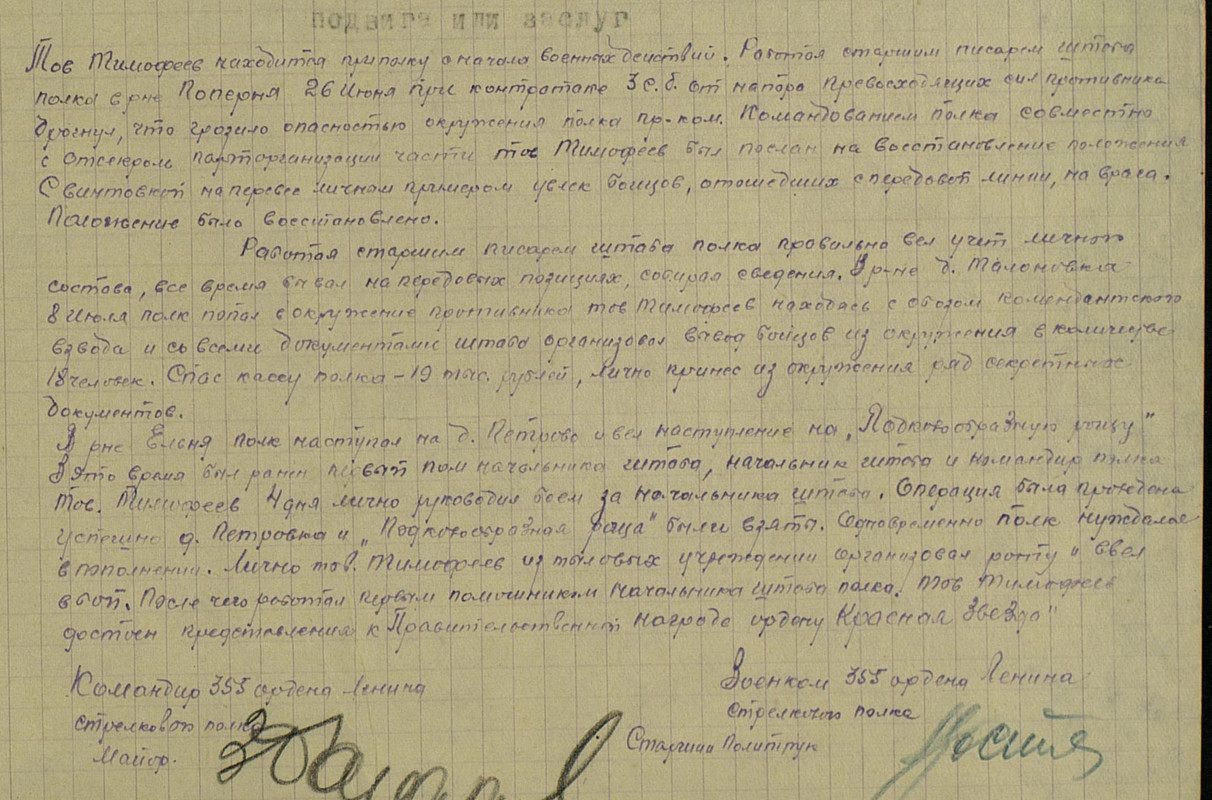 подвига или заслуг
Тов Тимофеев находится при полку с начала военных действий. Работая старшим писарем штаба
полка в р-не Поперня 26 Июня при контратаке 3 с.б. от напора превосходящих сил противника
дрогнул, что грозило опасностью окружения полка пр-ком. Командованием полка совместно
с отсекром парторганизации части тов Тимофеев был послан на восстановление положения
С винтовкой наперевес личным примером увлек бойцов, отошедших с передовой линии, на врага.
Положение было восстановлено.
Работая старшим писарем штаба полка правильно вел учет личного
состава, все время бывал на передовых позициях, собирая сведения. В р-не д. Малоновка
8 Июля полк попал в окружение противника тов Тимофеев находясь с обозом комендантского
взвода и со всеми документами штаба организовал вывод бойцов из окружения в количестве
18 человек. Спас кассу полка – 19 тыс. рублей, лично принес из окружения ряд секретных
документов.
В рне Ельня полк наступал на д. Петрово и вел наступление на „Подковообразную рощу"
В это время был ранен первый пом начальника штаба, начальник штаба и командир полка
Тов. Тимофеев 4 дня лично руководил боем за начальника штаба. Операция была проведена
успешно д. Петровка и „Подковообразная роща" были взяты. Одновременно полк нуждался
в пополнении. Лично тов. Тимофеев из тыловых учреждении организовал роту и ввел
в бой. После чего работал первым помощником начальника штаба полка. Тов Тимофеев
достоин представления к Правительственной награде ордену Красная Звезда"
Командир 355 ордена Ленина
стрелкового полка
Майор.
Военком 355 ордена Ленина
стрелкового полка
Старший Политрук